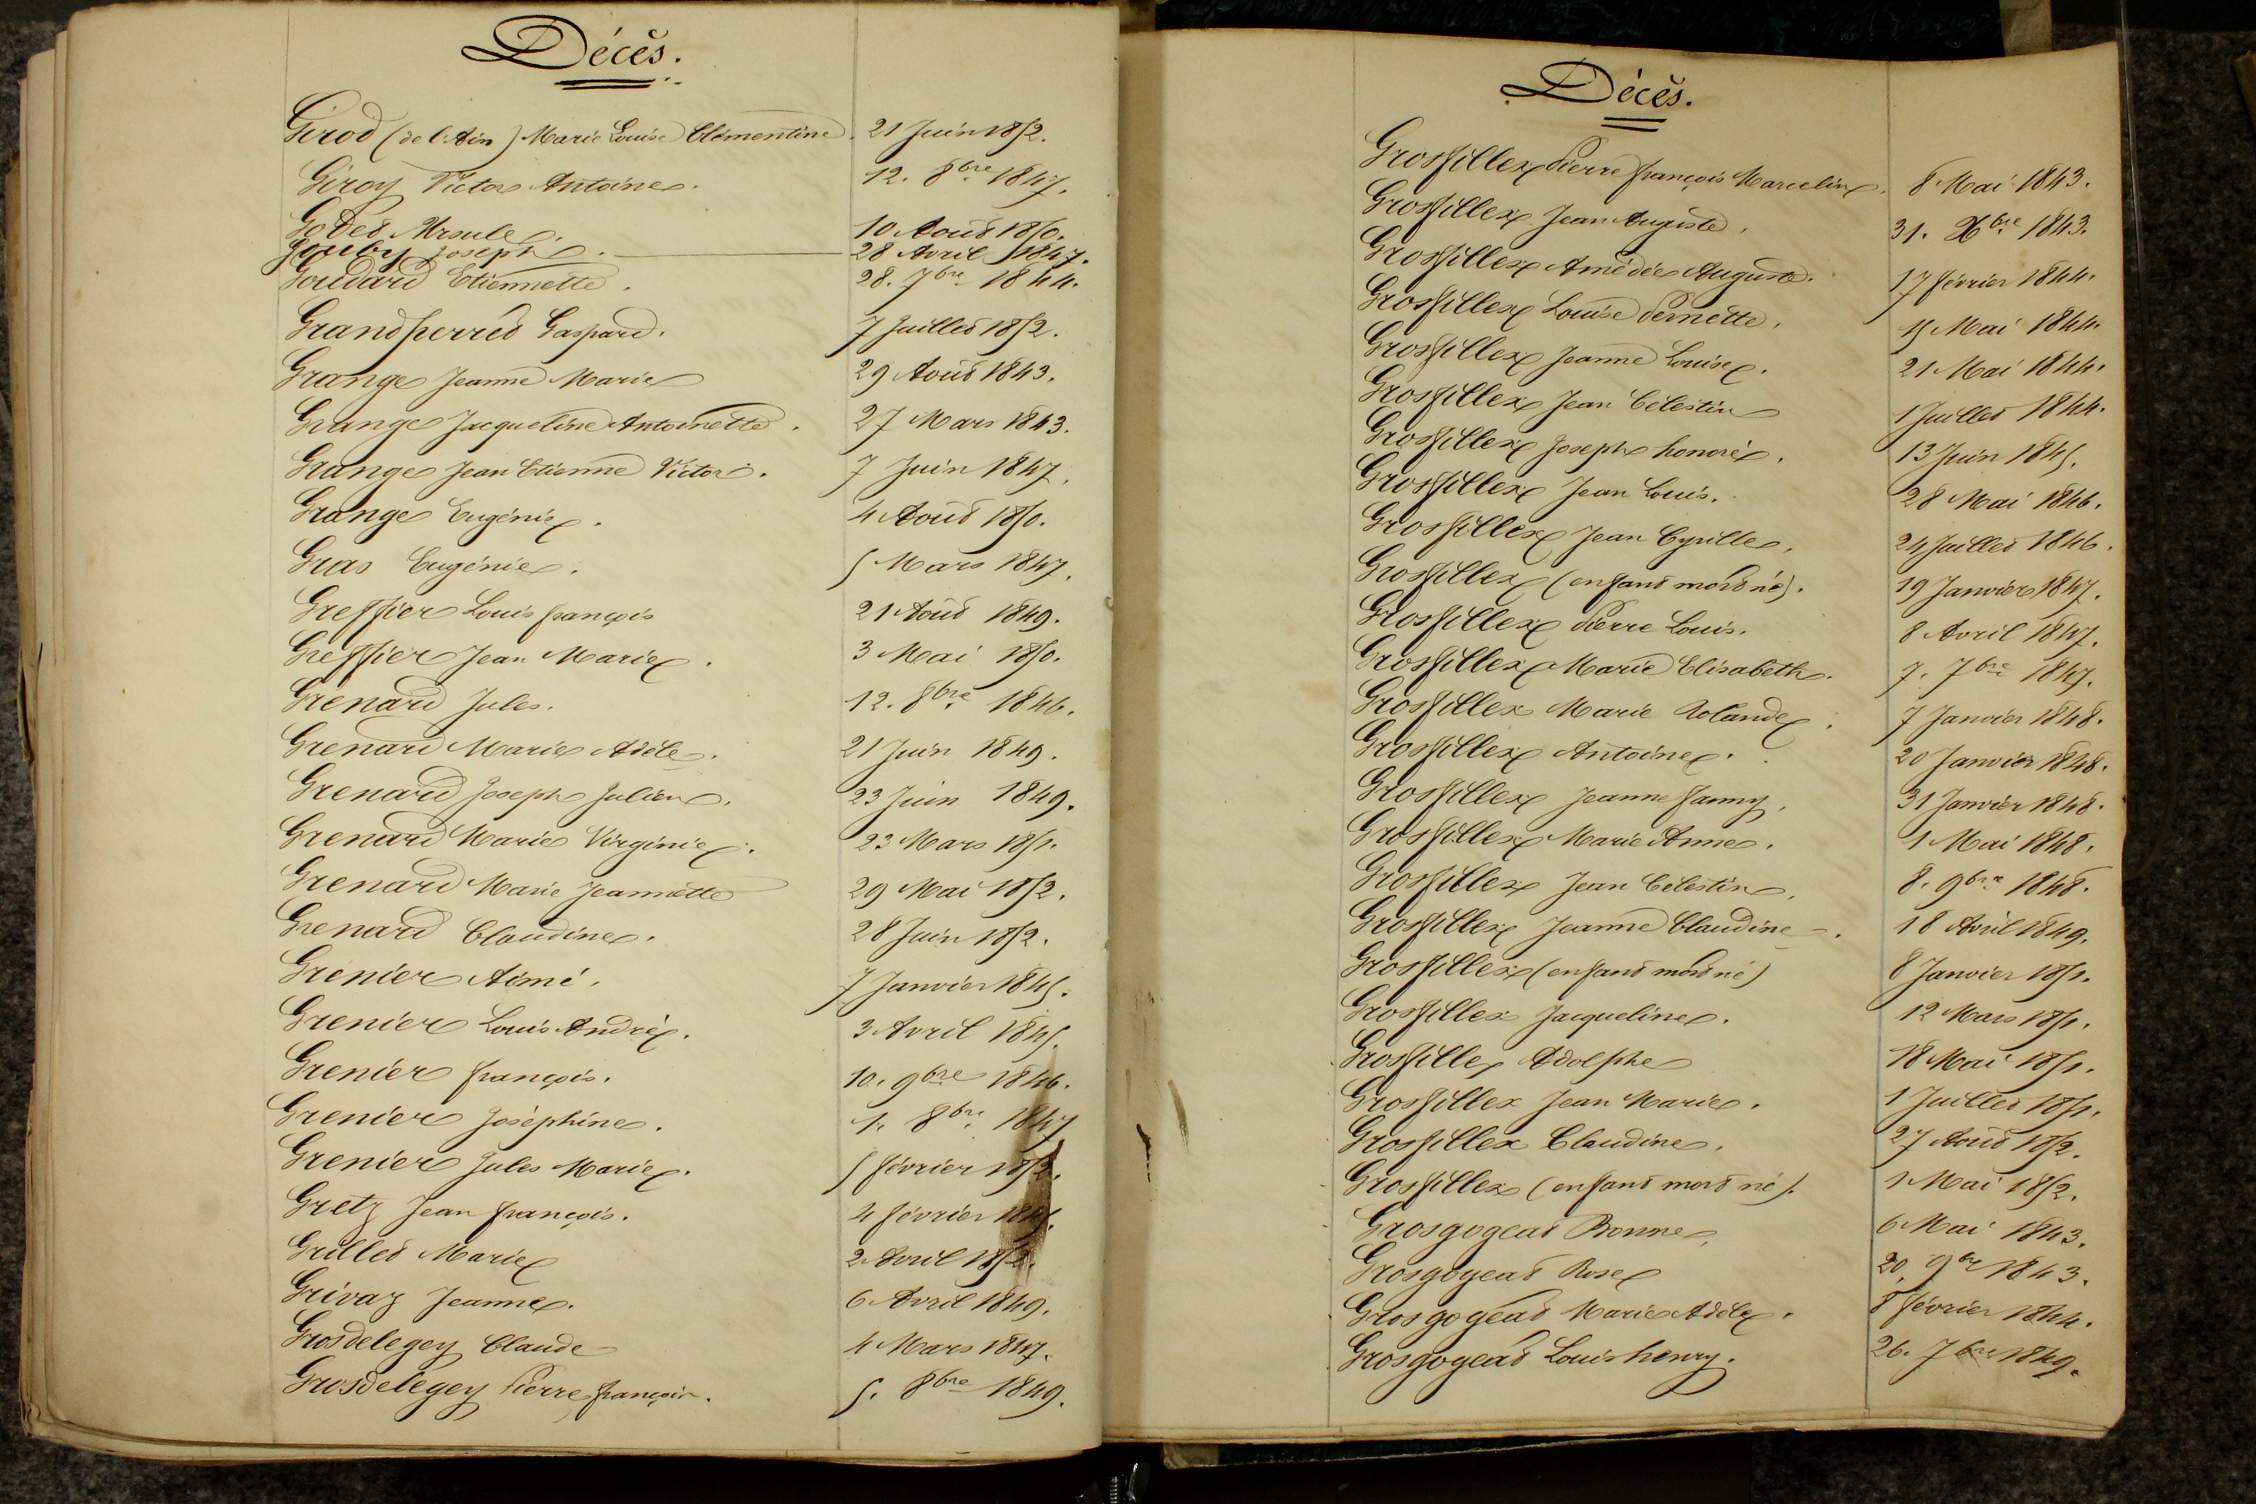 Décès.
Girod (de l'Ain) Marie Louise Clémentine. 21 Juin 1852.
Giroy Victor Antoine. 12. 8bre 1847.
Godet Ursule. 10 Août 1850.
Gouby Joseph. 28 Avril 1847.
Goudard Etiennette. 28. 7bre 1844.
Grandperret Gaspard. 7 Juillet 1852.
Grange Jeanne Marie 29 Août 1843.
Grange Jacqueline Antoinette. 27 Mars 1843.
Grange Jean Etienne Victor. 7 Juin 1847.
Grange Eugénie. 4 Août 1850.
Gras Eugénie. 5 Mars 1847.
Greffier Louis françois 21 Août 1849.
Greffier Jean Marie. 3 Mai 1850.
Grenard Jules. 12. 8bre 1846.
Grenard Marie Adèle. 21 Juin 1849.
Grenard Joseph Julien. 23 Juin 1849.
Grenard Marie Virginie. 23 Mars 1851.
Grenard Marie Jeannette 29 Mai 1852.
Grenard Claudine. 28 Juin 1852.
Grenier Aimé. 7 Janvier 1845.
Grenier Louis André. 3 Avril 1845.
Grenier françois. 10. 9bre 1846.
Grenier Joséphine. 1. 8bre 1847
Grenier Jules Marie. 5 février 1852.
Gretz Jean françois. 4 février 1845.
Grillet Marie 2 Avril 1852.
Grivaz Jeanne. 6 Avril 1849.
Grosdelegey Claude 4 Mars 1847.
Grosdelegey Pierre françois. 5. 8bre 1849.
Décès.
Grosfillex Pierre françois Marcelin. 8 Mai 1843.
Grosfillex Jean Auguste. 31. Xbre 1843.
Grosfillex Amédée Auguste. 17 février 1844.
Grosfillex Louise Pernette. 15 Mai 1844.
Grosfillex Jeanne Louise. 21 Mai 1844.
Grosfillex Jean Célestin 1 Juillet 1844.
Grosfillex Joseph honoré. 13 Juin 1845.
Grosfillex Jean Louis. 28 Mai 1846.
Grosfillex Jean Cyrille. 24 Juillet 1846.
Grosfillex (enfant mort né). 19 Janvier 1847.
Grosfillex Pierre Louis. 8 Avril 1847.
Grosfillex Marie Elisabeth. 7. 7bre 1847.
Grosfillex Marie Rolande. 7 Janvier 1848.
Grosfillex Antoine. 20 Janvier 1848.
Grosfillex Jeanne fanny. 31 Janvier 1848.
Grosfillex Marie Anne. 1 Mai 1848.
Grosfillex Jean Célestin. 8. 9bre 1848.
Grosfillex Jeanne Claudine. 18 Avril 1849.
Grosfillex (enfant mort né) 8 Janvier 1851.
Grosfillex Jacqueline. 12 Mars 1851.
Grosfillex Adolphe 18 Mai 1851.
Grosfillex Jean Marie. 1 Juillet 1851.
Grosfillex Claudine. 27 Août 1852.
Grosfillex (enfant mort né). 1 Mai 1852.
Grosgogeat Bonne. 6 Mai 1843.
Grosgogeat Rose 20. 9bre 1843.
Grosgogeat Marie Adèle. 8 février 1844.
Grosgogeat Louis henry. 26. 7bre 1849.